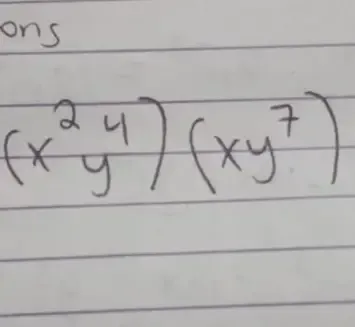 ons
(x²y⁴)(xy⁷)